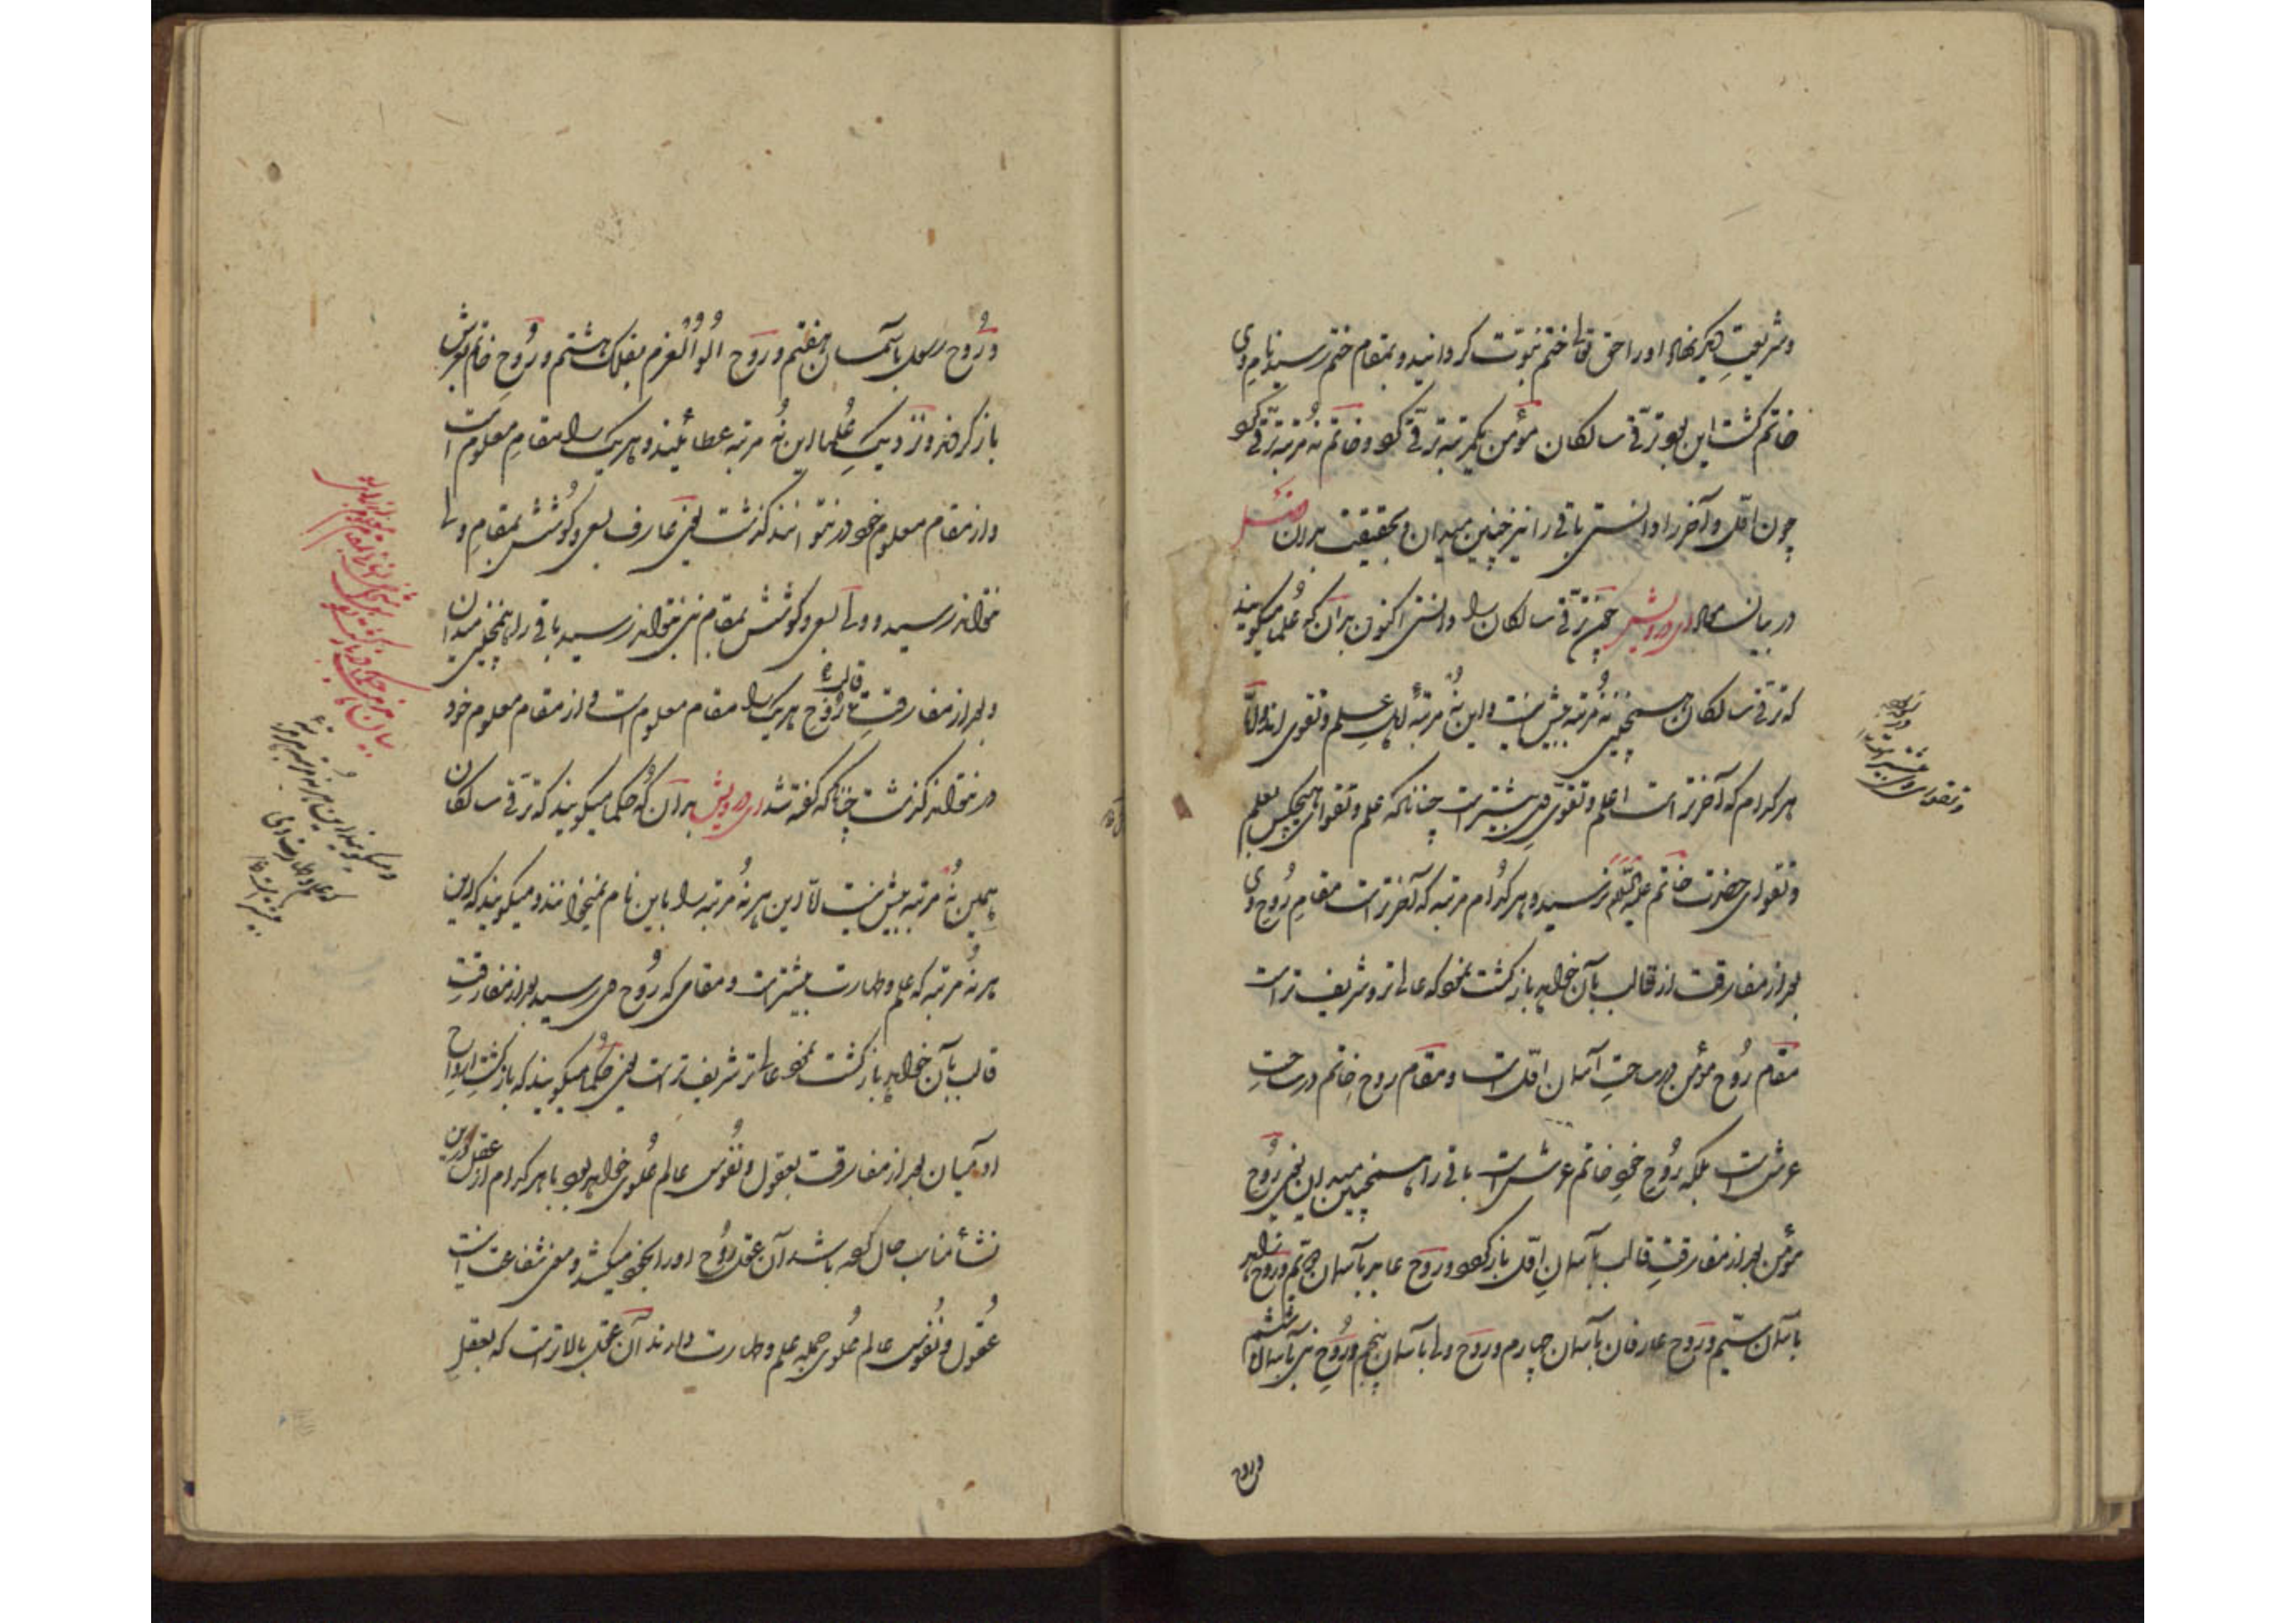 وشریعتِ دیگر نهاد او را حق تعالی ختم نبوّت گردانید و بمقام ختم رسید نامِ وی
خاتم گشت این بود ترقّی سالکان مؤمن یکمرتبه ترقّی کرد و خاتم نُه مرتبه ترقّی کرد
چون اوّل و آخر را دانستی باقی را نیز چنین میدان و بحقیقت بدان فصل
در بیان معاد ای درویش چون ترقّی سالکان را دانستی اکنون بدان که عُلما میگویند
که ترقّی سالکان همچنین نُه مرتبه بیش نیست و این نُه مرتبه اهل علم و تقوی اند و امّا
هر کدام که آخرتر است علم و تقوی وی بیشتر است چنانکه علم و تقوای هیچکس بعلم
و تقوای حضرت خاتم علیه السّلم نرسید و هر کدام مرتبه که آخرتر است مقامِ رُوح وی
بعد از مفارقت از قالب بآن خواهد بازگشت نمود که عالی تر و شریف تر است
مقام رُوح مؤمن در ساحتِ آسمان اوّل است و مقام روح خاتم در ساحتِ
عرش است بلکه رُوح خود خاتم عرش است باقی را همچنین میدان یعنی رُوح
مؤمن بعد از مفارقتِ قالب بآسمانِ اوّل باز گردد و روح عابد بآسمان دویّم و روح زاهد
بآسمان سیّم و روح عارفان بآسمان چهارم و روح ولی بآسمان پنجم و رُوحِ نبی بآسمان ششم
و روح
و رُوح رسول بآسمان هفتم و روح اُلُوا الْعَزم بفلک هشتم و رُوح خاتم بعرش
باز گردند و نزدیکِ عُلما این نُه مرتبه عطائیند و هر یک را مقامِ معلوم است
و از مقام معلوم خود نتوانند گذشت یعنی عارف بسعی و کُوشش بمقامِ ولی
نتواند رسید و ولی بسعی و کوشش بمقام نبی نتواند رسید باقی را همچنین میدان
و بعد از مفارقتِ قالب رُوح هر یک را مقام معلوم است و از مقام معلوم خود
در نتواند گذشت چنانکه گفته شد ای درویش بدان که حُکما میگویند که ترقّی سالکان
همین نُه مرتبه بیش نیست امّا این هر نُه مرتبه را باین نام نمیخوانند و میگویند که درین
هر نُه مرتبه که علم و طهارت بیشتر است و مقامی که رُوح می رسید بعد از مفارقتِ
قالب بآن خواهد بازگشت نمود عالی تر شریف تر است یعنی حُکما میگویند که بازگشتِ ارواح
آدمیان بعد از مفارقت بعقول و نُفُوس عالم عُلوی خواهد بود با هر کدام از عقل درین
نشأ مناسب حاصل کرده باشد آن عقل رُوح او را بخود میکشد و معنی شفاعت اینست
عُقُول و نُفُوس عالم عُلوی جمله علم و طهارت دارند آن عقل بالاتر است که بعقلِ